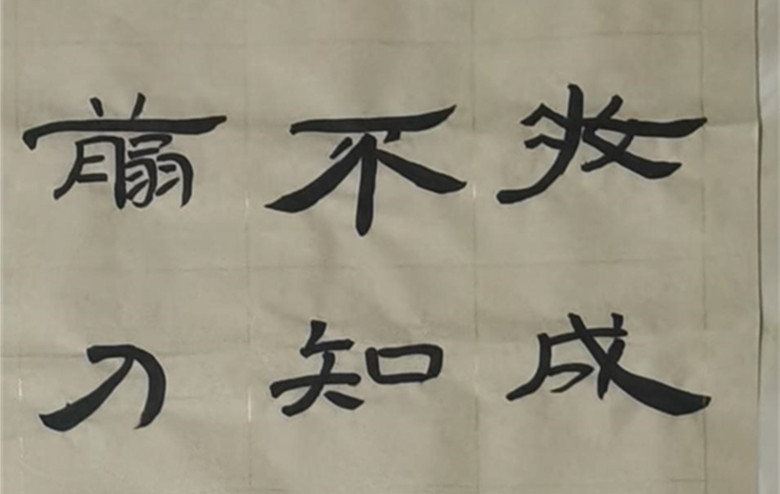 妆成
不知
翦刀